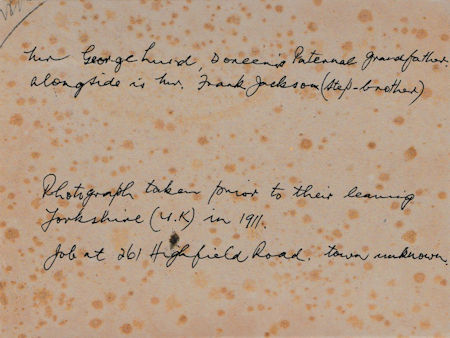 Mr George Luid, Doreen's Paternal grandfather.
alongside is Mr. Frank Jackson (step-brother)
Photograph taken prior to their leaving
Yorkshire (U.K) in 1911.
Job at 261 Highfield Road, town unknown.